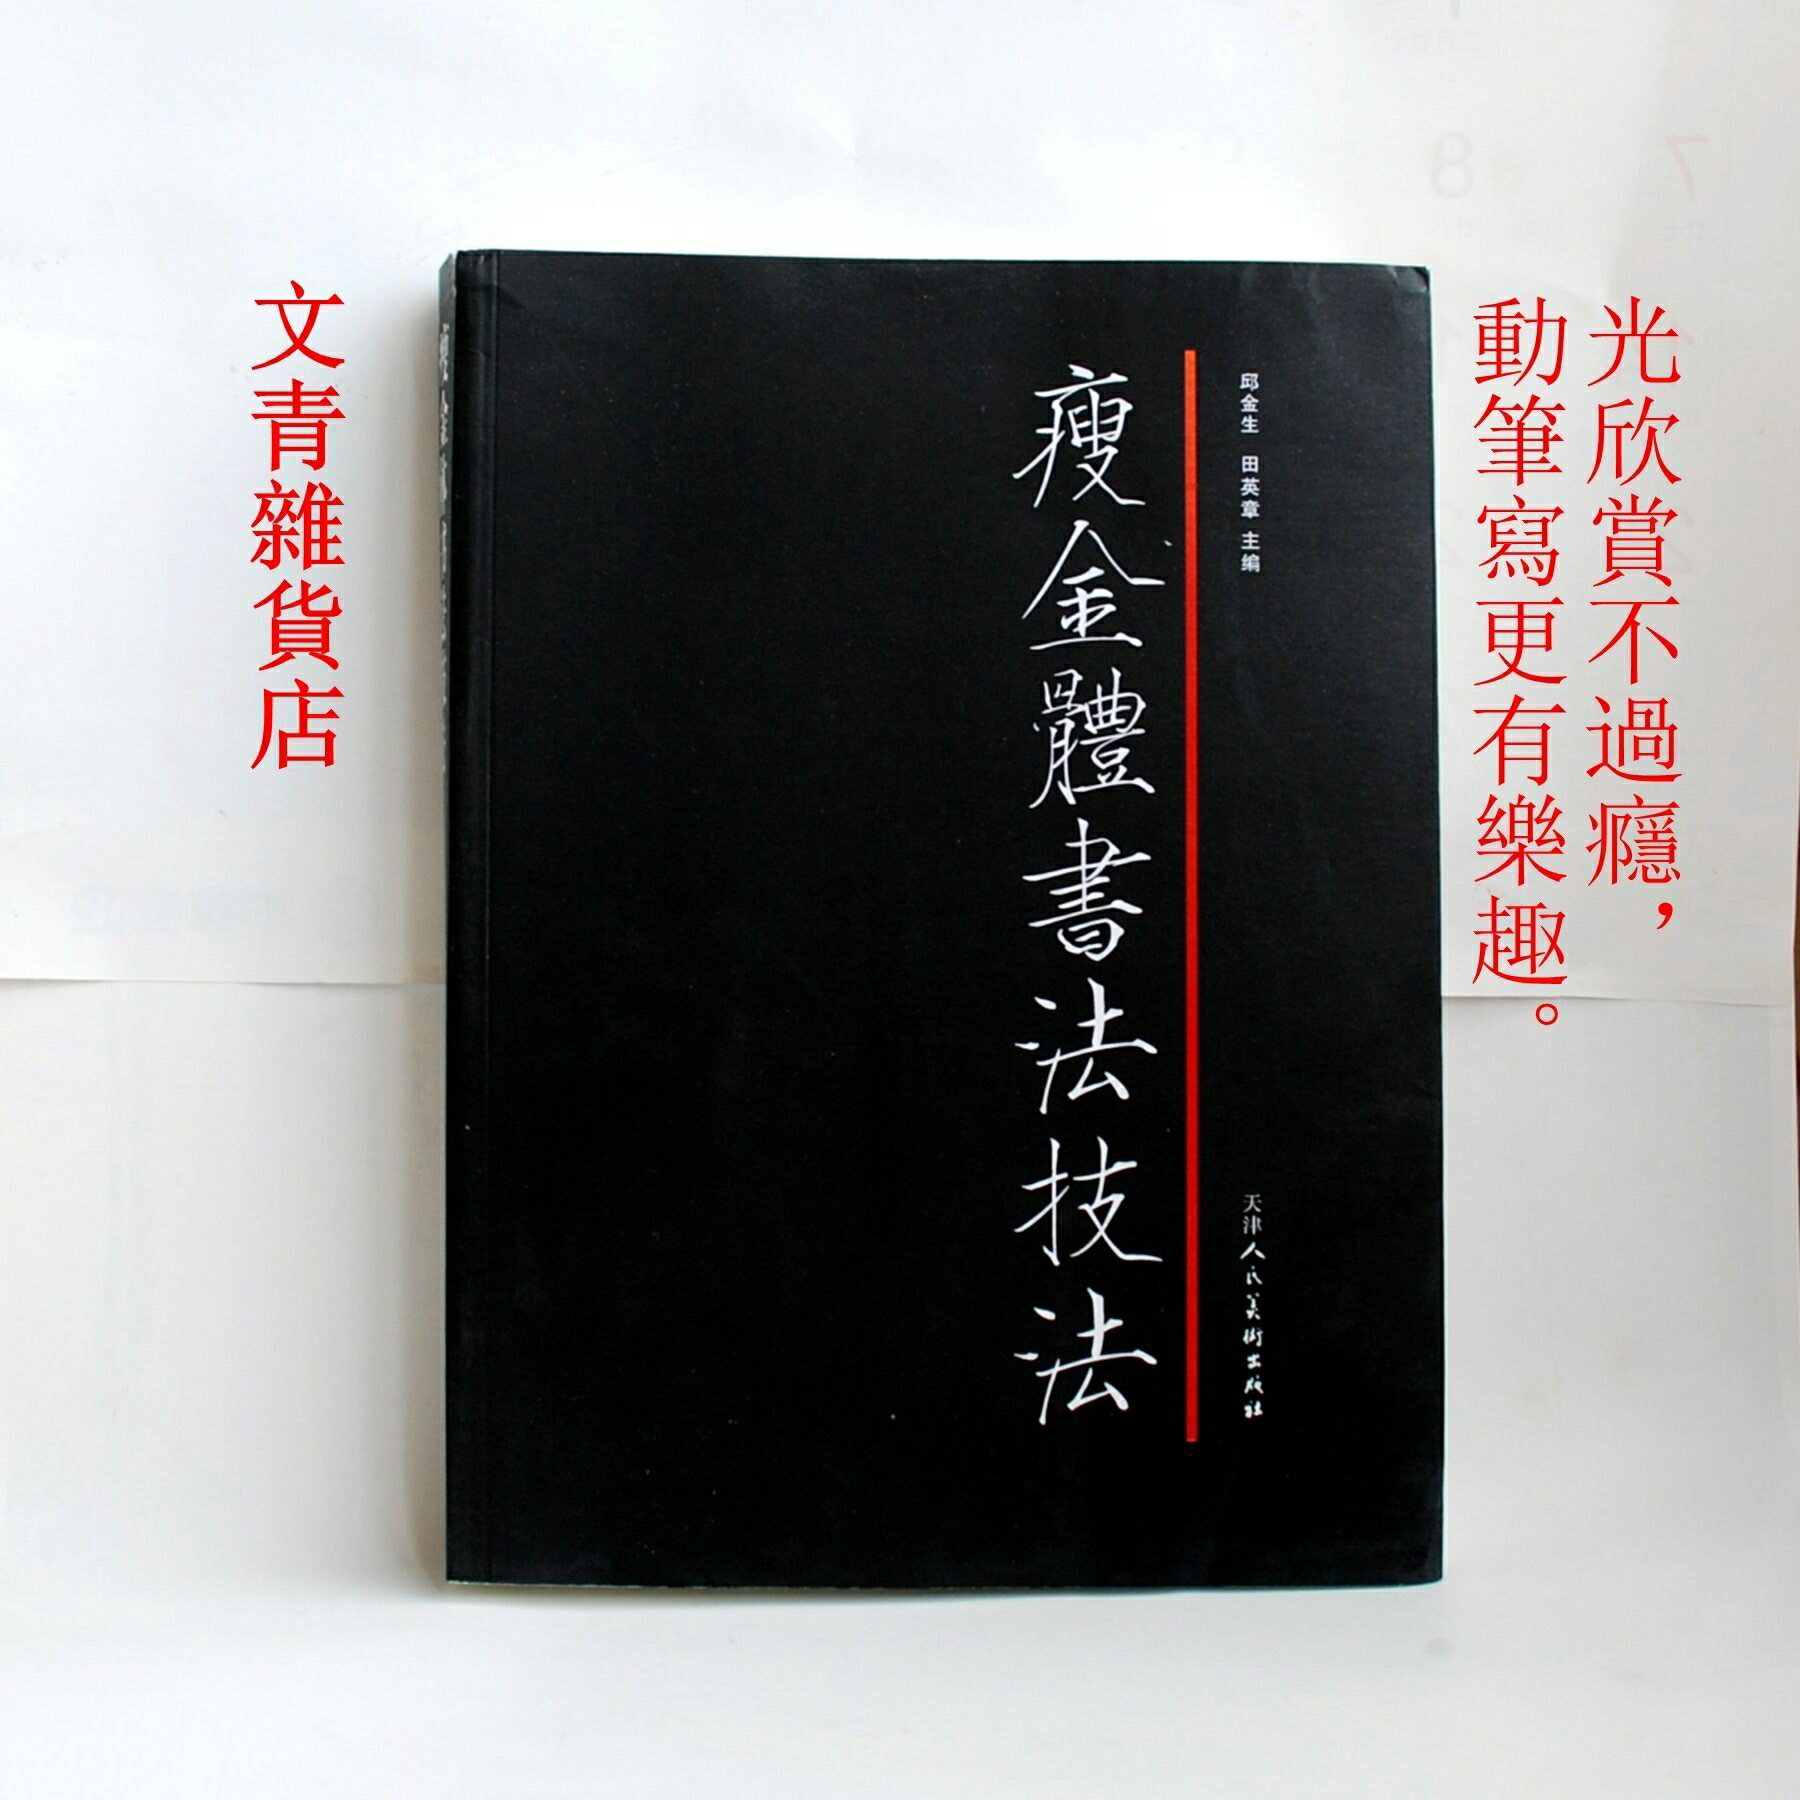 光欣賞不過癮，
動筆寫更有樂趣。
邱金生 田英章 主编
天津人民美術出版社
瘦金體書法技法
文青雜貨店
8
7